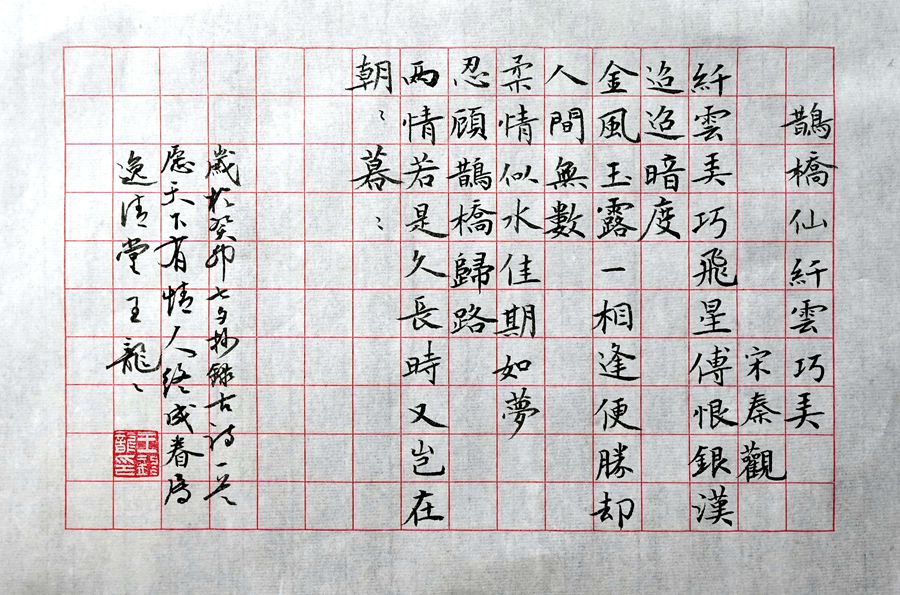 鵲橋仙纤雲巧弄
宋秦觀
纤雲弄巧飛星傳恨銀漢
迢迢暗度
金風玉露一相逢便勝却
人間無數
柔情似水佳期如夢
忍顧鵲橋歸路
两情若是久長時又豈在
朝〻暮〻
歲於癸卯七夕抄錄古詩一首
愿天下有情人终成眷属
逸清堂王龍〻
王龍龍印